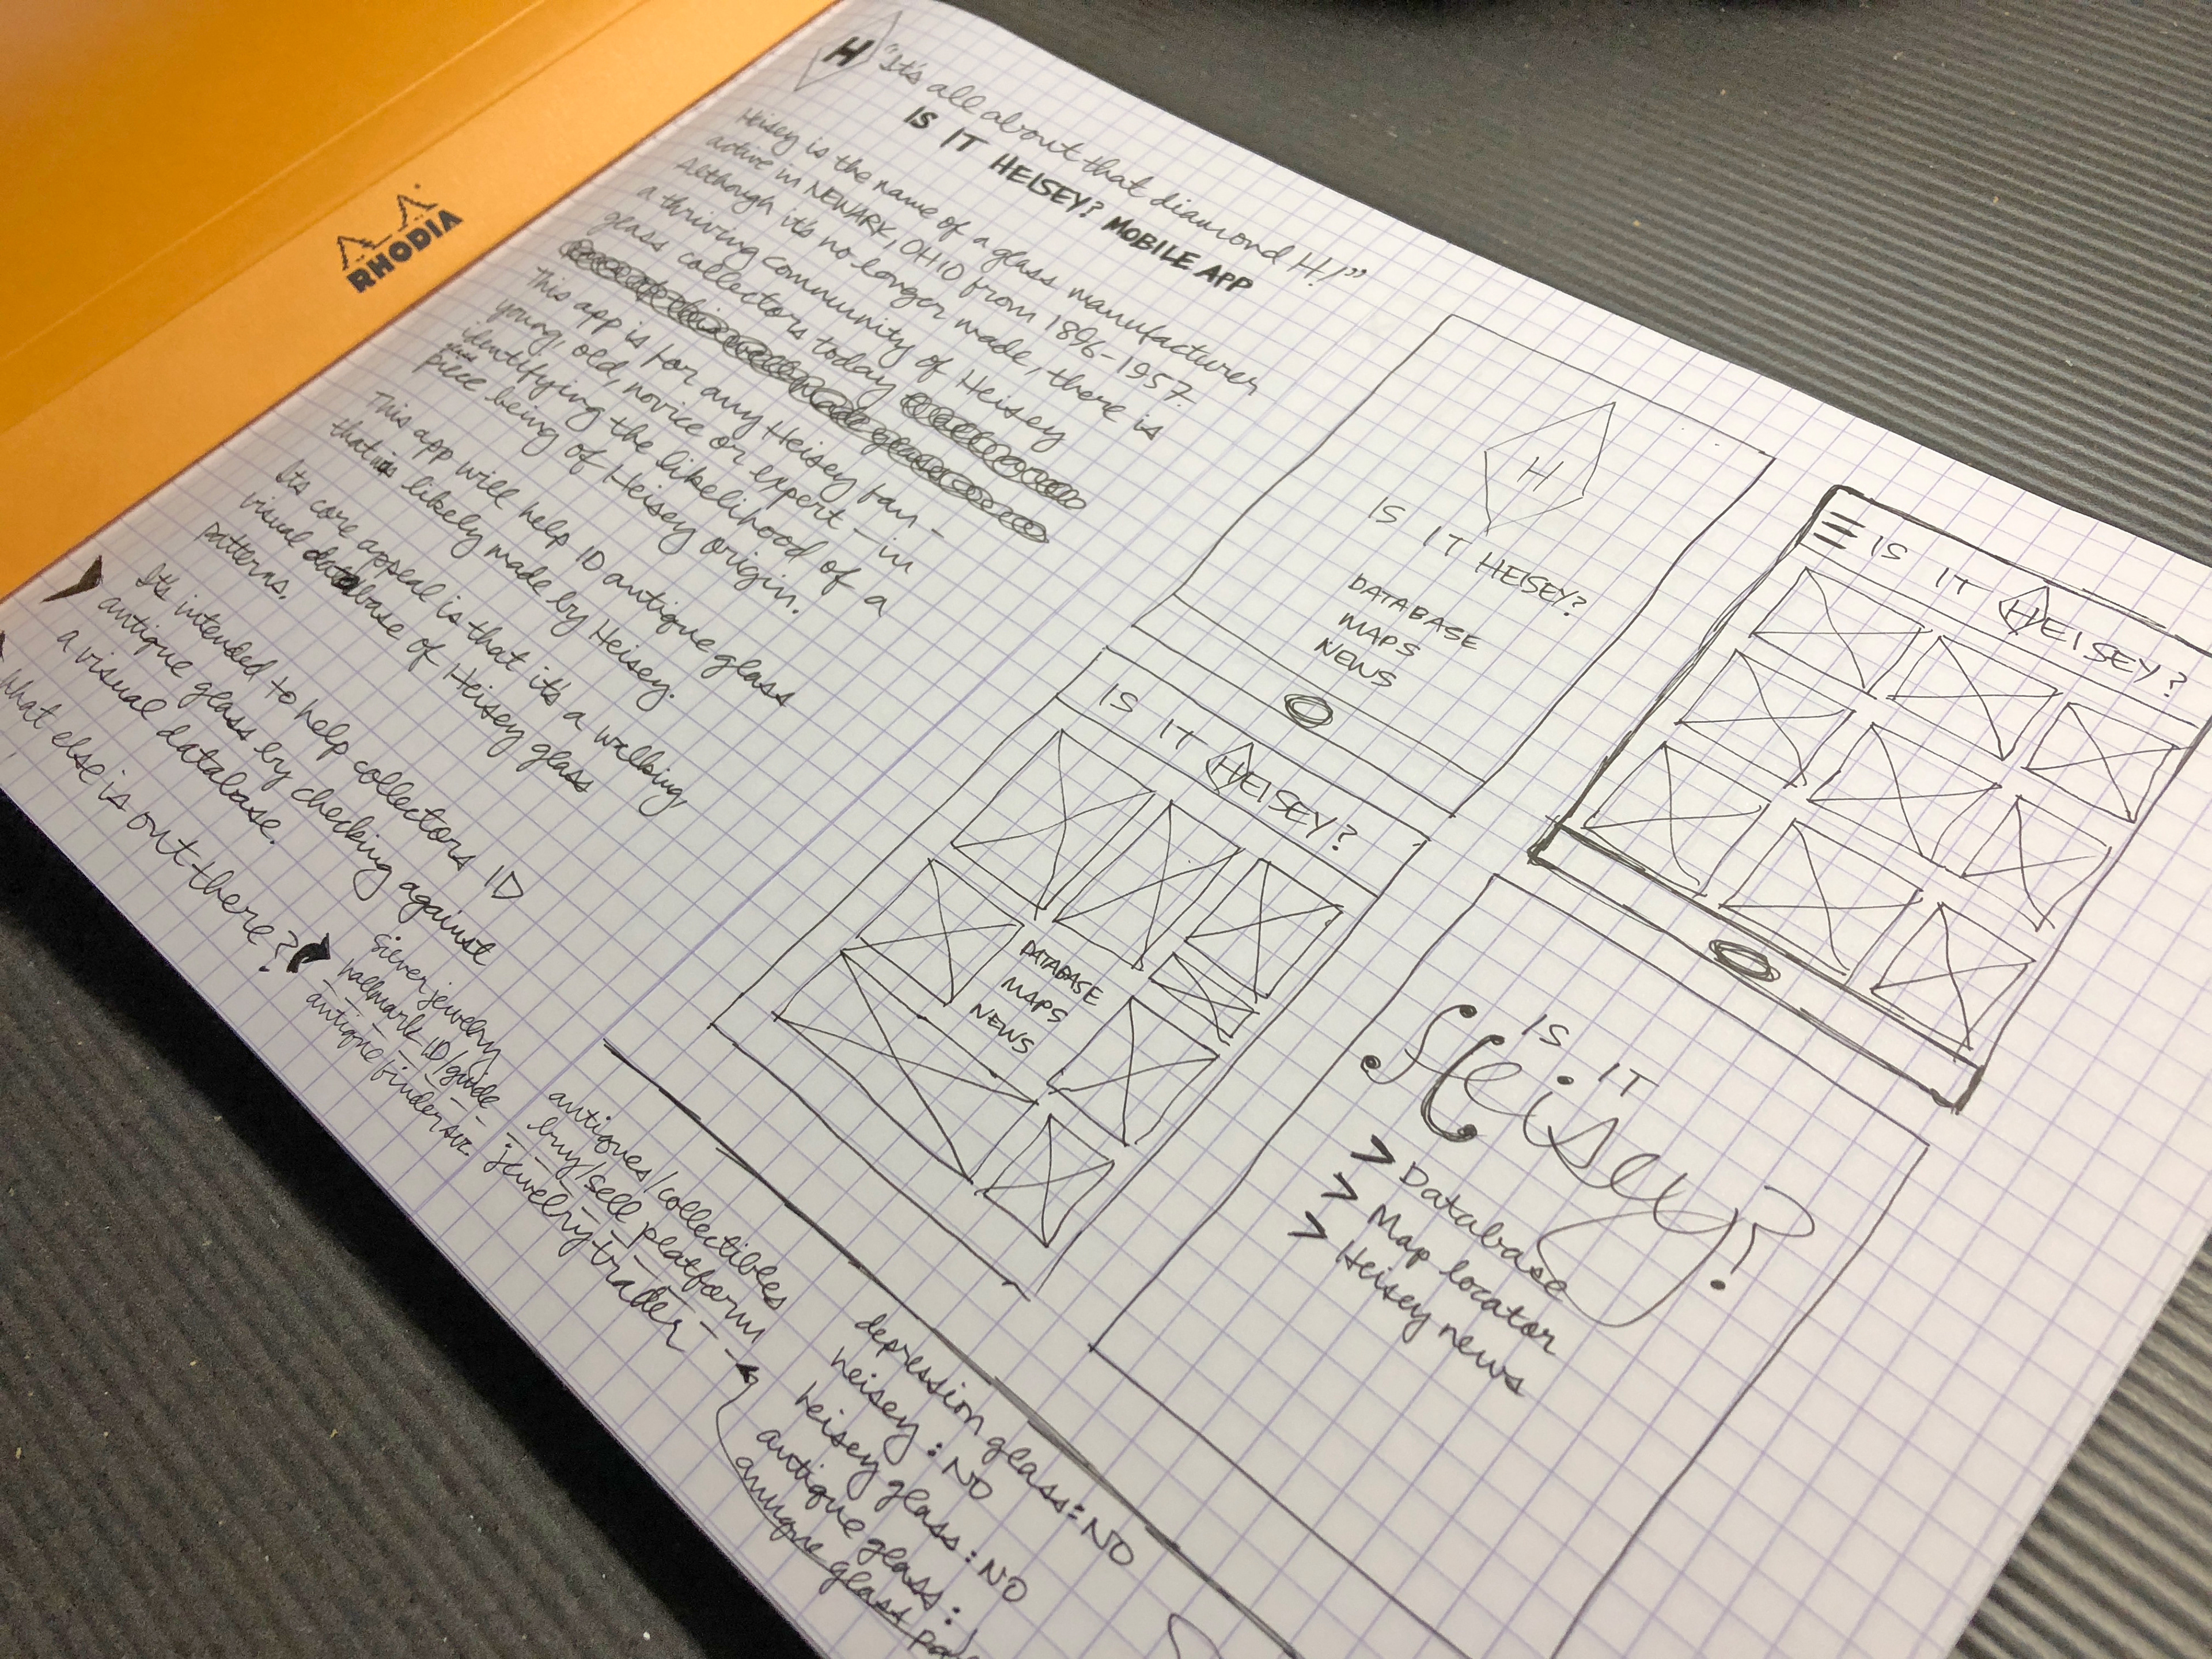 RHODIA
H
"It's all about that diamond H!"
IS IT HEISEY? MOBILE APP
Heisey is the name of a glass manufacturer
active in NEWARK, OHIO from 1896-1957.
Although it's no longer made, there is
a thriving community of Heisey
glass collectors today
This app is for any Heisey fan -
young, old, novice or expert - in
identifying the likelihood of a
glass
piece being of Heisey origin.
This app will help ID antique glass
that is likely made by Heisey.
Its core appeal is that it's a walking
visual database of Heisey glass
patterns.
It's intended to help collectors ID
antique glass by checking against
a visual database.
What else is out there?
silver jewelry
hallmark ID/guide
antique finder svc.
antiques/collectibles
buy/sell platform
jewelry trader
depression glass: NO
heisey: NO
heisey glass: NO
antique glass:
antique glass
H
IS IT HEISEY?
DATABASE
MAPS
NEWS
IS IT HEISEY?
IS IT HEISEY?
DATABASE
MAPS
NEWS
IS IT
Heisey?
> Database
> Map locator
> Heisey news